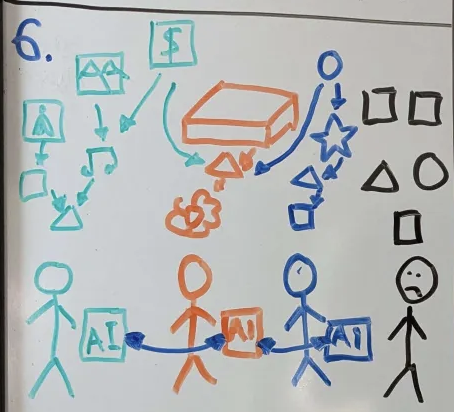 6.
$
A
AI
AI
AI